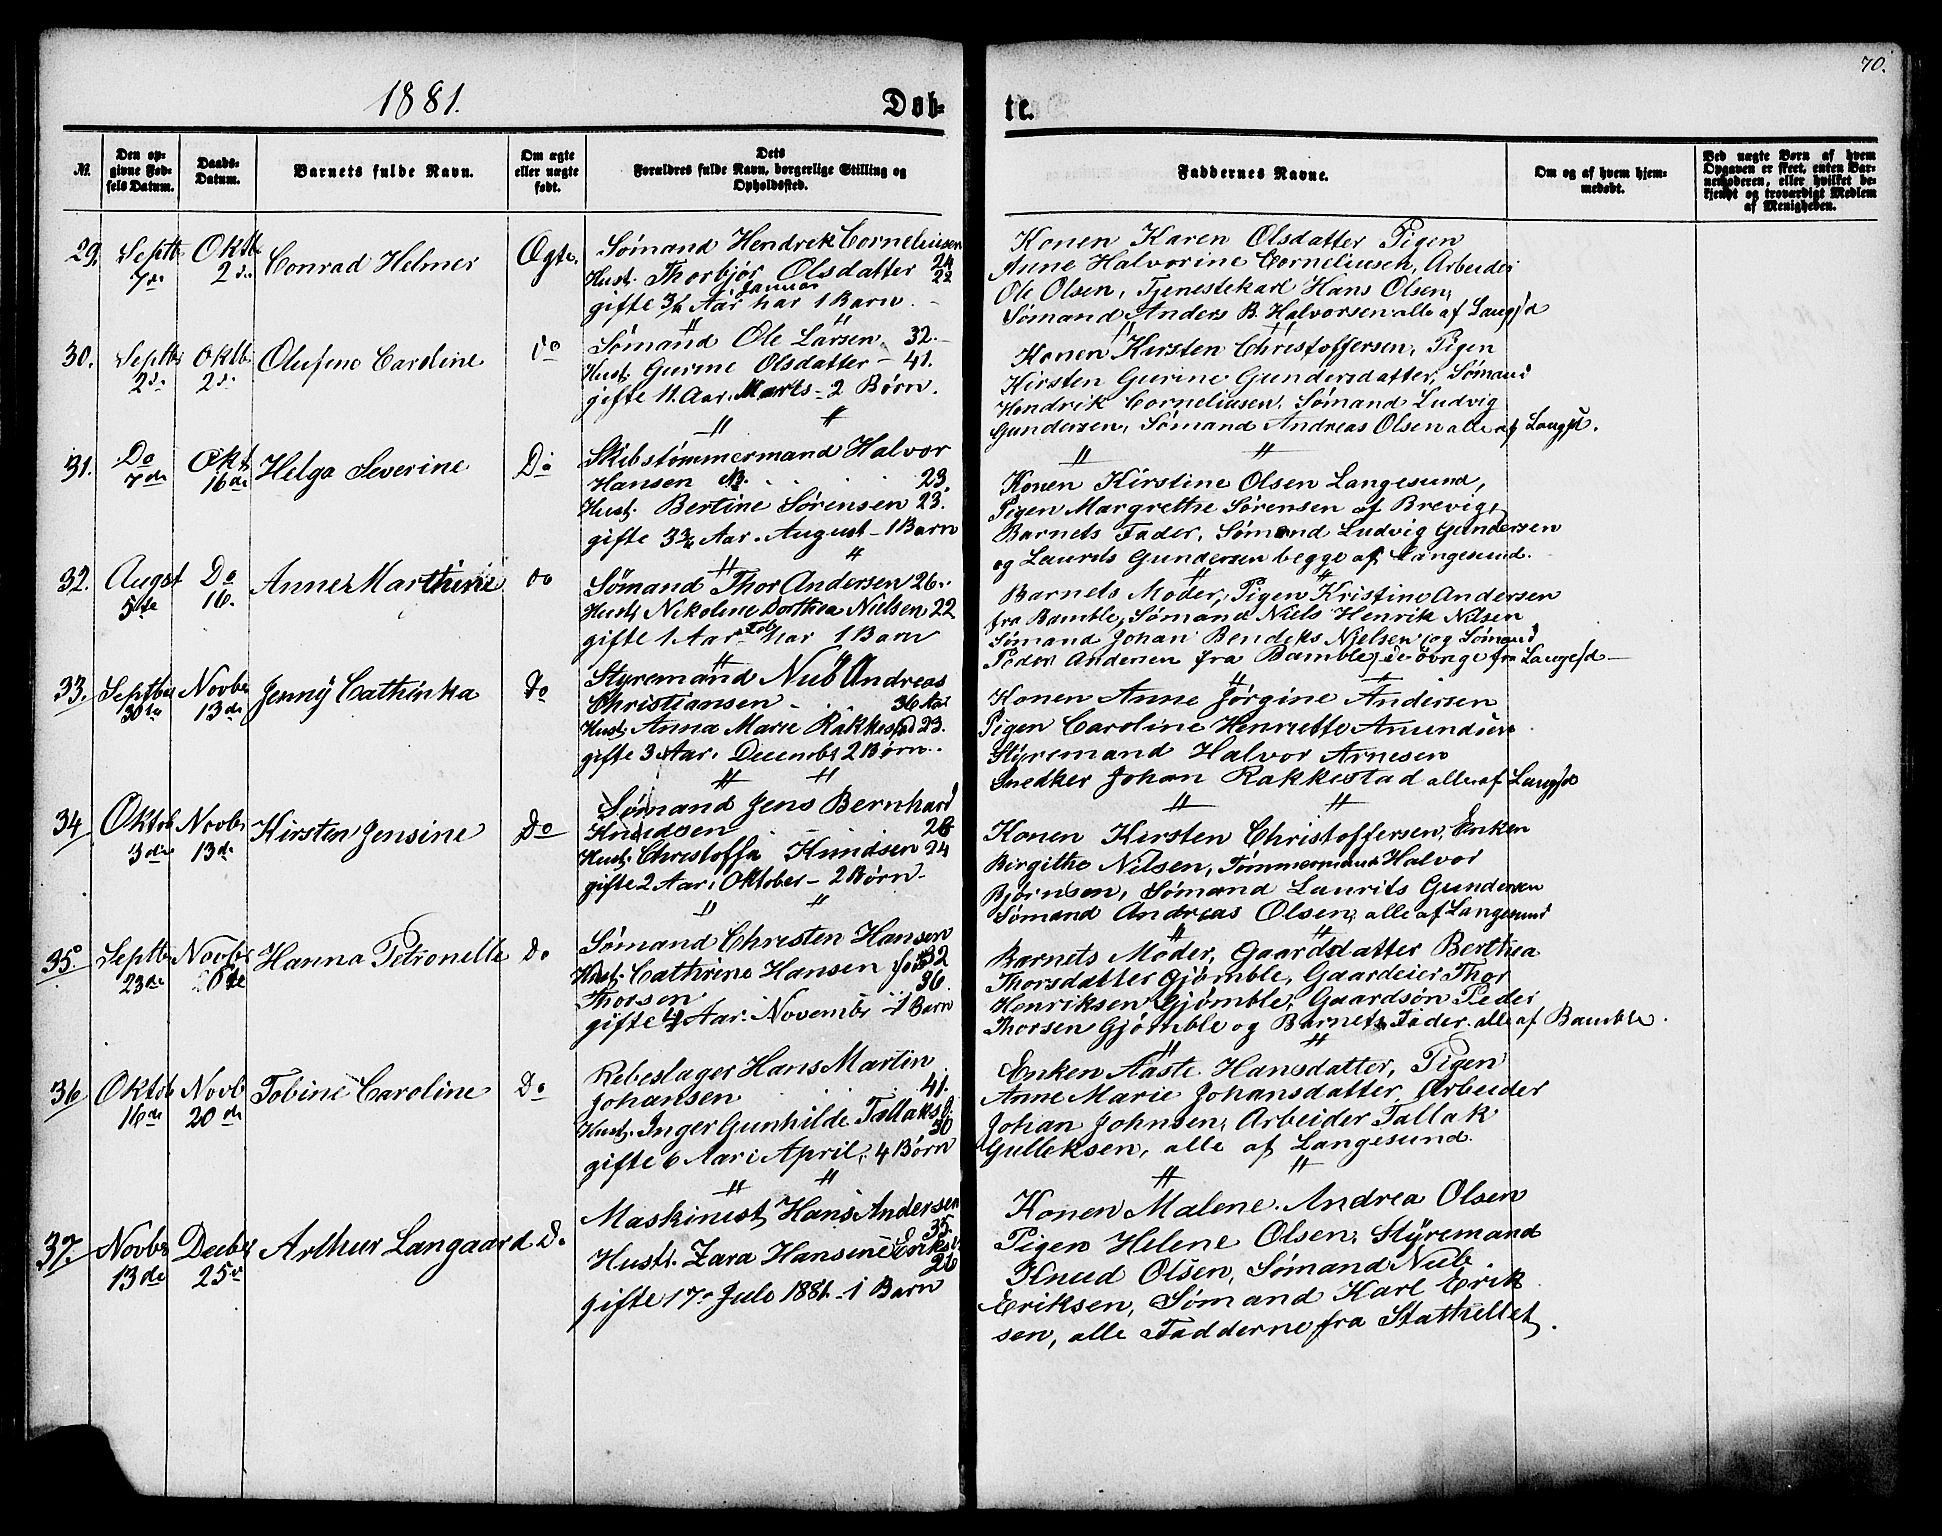 70.
1881.
Døb- te.
№ | Den opgivne Fødsels Datum. | Daabs-Datum. | Barnets fulde Navn. | Om ægte eller uægte født. | Dets Forældres fulde Navn, borgerlige Stilling og Opholdssted. | Faddernes Navne. | Om og af hvem hjemmedøbt. | Ved uægte Børn af hvem Opgaven er skeet, enten Barnemoderen, eller hvilket bekjendt og troværdigt Medlem af Menigheden.
29. Septb 7de Oktb 2d. Conrad Helmer Ægte.
Sømand Hendrik Corneliusen 24
Hust. Thorbjør Olsdatter 22
gifte 3½ Aar Januar har 1 Barn.
Konen Karen Olsdatter Pigen
Anne Halvorine Corneliusen, Arbeider
Ole Olsen, Tjenestekarl Hans Olsen,
Sømand Anders B. Halvorsen alle af Langsd
30. Septbr 2d. Oktb 2d. Olufine Caroline do
Sømand Ole Larsen 32.
Hust. Gurine Olsdatter 41.
gifte 11 Aar. Marts - 2 Børn.
Konen Kirsten Christoffersen, Pigen
Kirsten Gurine Gundersdatter, Sømand
Hendrik Corneliusen, Sømand Ludvig
Gundersen, Sømand Andreas Olsen alle af Langsd.
31. Do 7de Okt 16de Helga Severine Do
Skibstømmermand Halvor
Hansen 23.
Hust. Bertine Sørensen 23.
gifte 3¾ Aar. August - 1 Barn
Konen Kirstine Olsen Langesund,
Pigen Margrethe Sørensen af Brevig,
Barnets Fader, Sømand Ludvig Gundersen
og Laurits Gundersen begge af Langesund.
32. Augst 5te Do 16. Anne Marthine do
Sømand Thor Andersen 26.
Hust. Nikoline Dorthea Nielsen 22
gifte 1 Aar Feb har 1 Barn
Barnets Moder, Pigen Kristine Andersen
fra Bamble, Sømand Niels Henrik Nilsen
Sømand Johan Bendeks Nielsen og Sømand
Peder Andersen fra Bamble, de øvrige fra Langesd
33. Septber 30te Novbr 13de Jenny Cathinka do
Styremand Niels Andreas
Christiansen 36 Aar
Hust. Anna Marie Rakkestad 23.
gifte 3 Aar. Decembr 2 Børn.
Konen Anne Jørgine Andersen
Pigen Caroline Henriette Amundsen
Styremand Halvor Arnesen
Snedker Johan Rakkestad alle af Langsd
34 Oktob 3die Novbr 13de Kirsten Jensine Do
Sømand Jens Bernhard
Knudsen 28
Hust. Christoffa Knudsen 24
gifte 2 Aar i Oktober - 2 Børn
Konen Kirsten Christoffersen, Enken
Birgithe Nilsen, Tømmermand Halvor
Bjørnsen, Sømand Laurits Gundersen
Sømand Andreas Olsen, alle af Langesund
35. Septbr 23de Novbr Hanna Petronelle Do
Sømand Christen Hansen 32
Hust. Cathrine Hansen født
Thorsen 36.
gifte 4 Aar. Novembr - 1 Barn
Barnets Moder, Gaardsdatter Berthea
Thorsdatter Gjømble, Gaardeier Thor
Henriksen Gjømble, Gaardsøn Peder
Thorsen Gjømble og Barnets Fader. alle af Bamble.
36 Oktob 16de Novb 20de Tobine Caroline Do
Rebslager Hans Martin
Johansen 41.
Hust. Inger Gunhilde Tallaksd. 30
gifte 6 Aar i April, 4 Børn
Enken Aaste Hansdatter, Pigen
Anne Marie Johansdatter, Arbeider
Johan Johnsen, Arbeider Tallak
Gulleksen, alle af Langesund.
37. Novbr 13de Decbr 25 Arthur Langaard D.
Maskinist Hans Andersen
35.
Hustr. Zara Hansine Eriks
26
gifte 17 Juli 1881 - 1 Barn
Konen Malene Andrea Olsen
Pigen Helene Olsen, Styremand
Knud Olsen, Sømand Niels
Eriksen, Sømand Karl Erik
sen, alle Fadderne fra Stathellet.